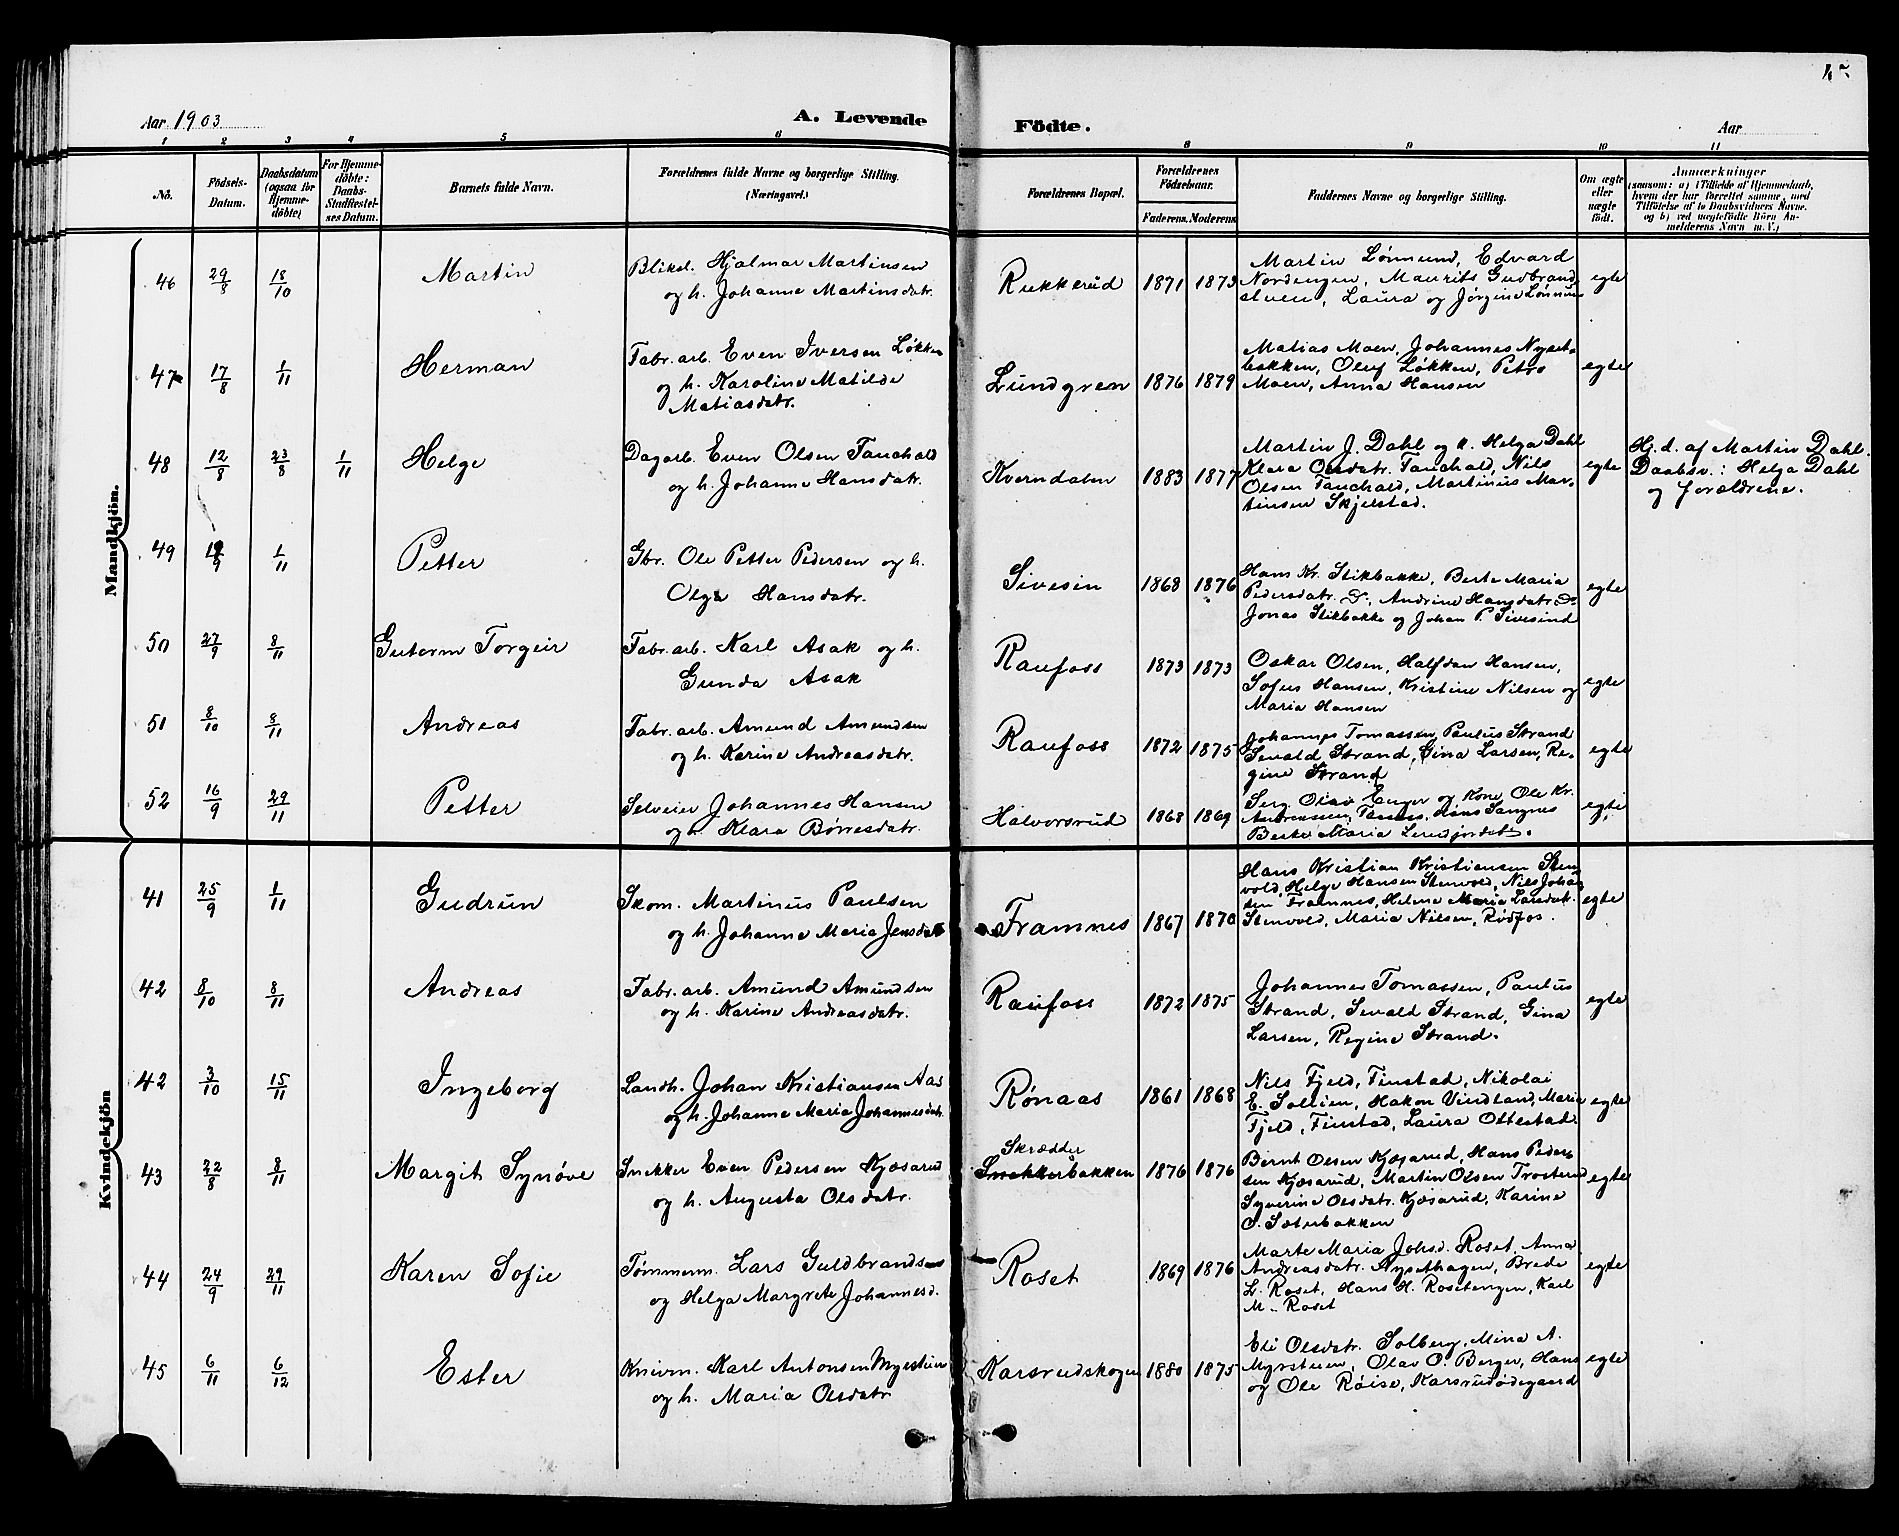 Aar 1903
A. Levende
Födte.
Aar
1 2 3 4 5 6 8 9 10 11
No.
Födsels-
Datum.
Daabsdatum
(ogsaa for
Hjemme-
döbte)
For Hjemme-
döbte:
Daabs-
Stadfæstel-
ses Datum.
Barnets fulde Navn.
Forældrenes fulde Navne og borgerlige Stilling.
(Næringsvei.)
Forældrenes Bopæl.
Forældrenes
Födselsaar.
Faderens. Moderens
Faddernes Navne og borgerlige Stilling.
Om ægte
eller
uægte
födt.
Anmærkninger
(saasom: a) i Tilfælde af Hjemmedaab,
hvem der har forrettet samme, med
Tilföielse af to Daabsvidners Navne.
og b) ved uægtefödte Börn An-
melderens Navn m. V.)
Mandkjön.
46 29/8 18/10 Martin
Bliksl. Hjalmar Martinsen
og h. Johanne Martinsdatr.
Rukkerud 1871 1873
Martin Lønnund, Edvard
Nordengen, Maurits Gudbrand
Laura og Jørgine Lønnun
egte
47 17/8 1/11 Herman
Fabr. arb. Even Iversen Løkken
og h. Karoline Matilde
Matiasdatr.
Lundgren 1876 1879
Matias Moen, Johannes Nyset-
bakken, Oluf Løkken, Petra
Moen, Anna Hansen
egte
48 12/8 23/8 1/11 Helge
Dagarb. Even Olsen Fauchald
og h. Johanne Hansdatr.
Kverndalen 1883 1877
Martin J. Dahl og h. Helga Dahl
Klara Olsdatr. Fauchald, Nils
Olsen Fauchald, Martinus Mar-
tinsen Skjelstad.
egte
Hj. d. af Martin Dahl.
Daabsv.: Helga Dahl
og forældrene.
49 1/11 Petter
Gbr. Ole Petter Pedersen og h.
Olga Hansdatr.
Sivesin 1868 1876
Hans Kr. Stikbakke, Berte Maria
Pedersdatr. do, Andrine Hansdatr. do
Jonas Stikbakke og Johan P. Sivesind
egte
50 27/9 8/11 Gutorm Torgeir
Fabr. arb. Karl Asak og h.
Gunda Asak
Raufoss 1873 1873
Oskar Olsen, Halfdan Hansen,
Sofus Hansen, Kristine Nilsen og
Maria Hansen
egte
51 8/10 8/11 Andreas
Fabr. arb. Amund Amundsen
og h. Karine Andreasdatr.
Raufoss 1872 1875
Johannes Tomassen, Paulus Strand
Sevald Strand, Gina Larsen, Re-
gine Strand
egte
52 16/9 29/11 Petter
Selveier Johannes Hansen
og h. Klara Børresdatr.
Halvorsrud 1868 1869
Serg. Olav Enger og Kone Ole Kr.
Berte Maria
egte
Kvindekjön
41 25/9 1/11 Gudrun
Skom. Martinus Paulsen
og h. Johanne Maria Jensdatr
Framnes 1867 1870
Hans Kristian Kristiansen Sten-
vold, Helge Hansen Stenvold, Nils Johan
sen Framnes, Helene Maria Larsdatr.
Stenvold, Maria Nilsen, Rødfos.
egte
42 8/10 8/11 Andreas
Fabr. arb. Amund Amundsen
og h. Karine Andreasdatr.
Raufoss 1872 1875
Johannes Tomassen, Paulus
Strand, Sevald Strand, Gina
Larsen, Regine Strand.
egte
42 3/10 15/11 Ingeborg
Landh. Johan Kristiansen Aas
og h. Johanne Maria Johannesdatr.
Rønaas 1861 1868
Nils Fjeld, Finstad, Nikolai
E. Sollien, Hakon Vindland, Maria
Fjeld, Finstad, Laura Ottestad.
egte
43 22/8 8/11 Margit Synøve
Snekker Even Pedersen Kjøsarud
og h. Augusta Olsdatr.
Skrædder
Snekkerbakken 1876 1876
Bernt Olsen Kjøsarud, Hans Peder-
sen Kjøsarud, Martin Olsen Trosterud
Syverine Olsdatr. Kjøsarud, Karine
S. Sæterbakken
egte
44 24/9 29/11 Karen Sofie
Tømmerm. Lars Guldbrandsen
og Helga Margrete Johannesd.
Roset 1869 1876
Marte Maria Johsd. Roset, Anna
Andreasdatr. Nysethagen, Brede
L. Roset, Hans H. Rosetengen, Karl
M. Roset
egte
45 6/11 6/12 Ester
Knivm. Karl Antonsen Myrstuen
og h. Maria Olsdatr
Karsrudskogen 1880 1875
Eli Olsdatr. Solberg, Mina A.
Myrstuen, Olav O. Berger, Hans
og Ole Røise, Karsrudødegaard
egte